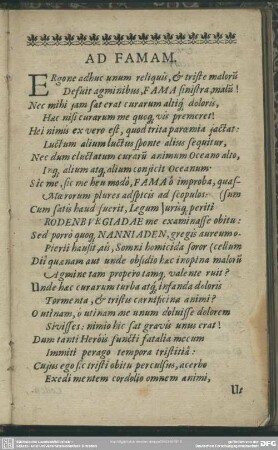 AD FAMAM.
ERgone adhuc unum reliquis, & triste malorũ
Defuit agminibus, FAMA sinistra, malũ!
Nec mihi jam sat erat curarum altiq; doloris,
Hac nisi curarum me quoq; vis premeret!
Hei nimis ex vero est, quod trita parœmia jactat:
Luctum alium luctus sponte alius sequitur,
Nec dum eluctatum curarũ animum Oceano alto,
Inq; alium atq; alium conjicit Oceanum.
Sic me, sic me heu modò, FAMA ô improba, quas-
Mœrorum plures adspicis ad scopulos:
(sum
Cum satis haud fuerit, Legum Jurisq; periti
RODENBURGIADAE me examinasse obitu:
Sed porrò quoq; NANNIADEN, gregis aureum o-
Pierii hausit, ais, Somni homicida soror
(cellum
Dii quænam aut unde obsidio hæc inopina malorũ
Agmine tam propero tamq; valente ruit?
Unde hæc curarum turba atq; infanda doloris
Tormenta, & tristis carnificina animi?
O utinam, ô utinam me unum doluisse dolorem
Sivisses: nimio hic sat gravis unus erat!
Dum tanti Herôis functi fatalia mecum
Immiti perago tempora tristitiâ:
Cujus ego sic tristi obitu perculsus, acerbo
Exedi mentem cordolio omnem animi,